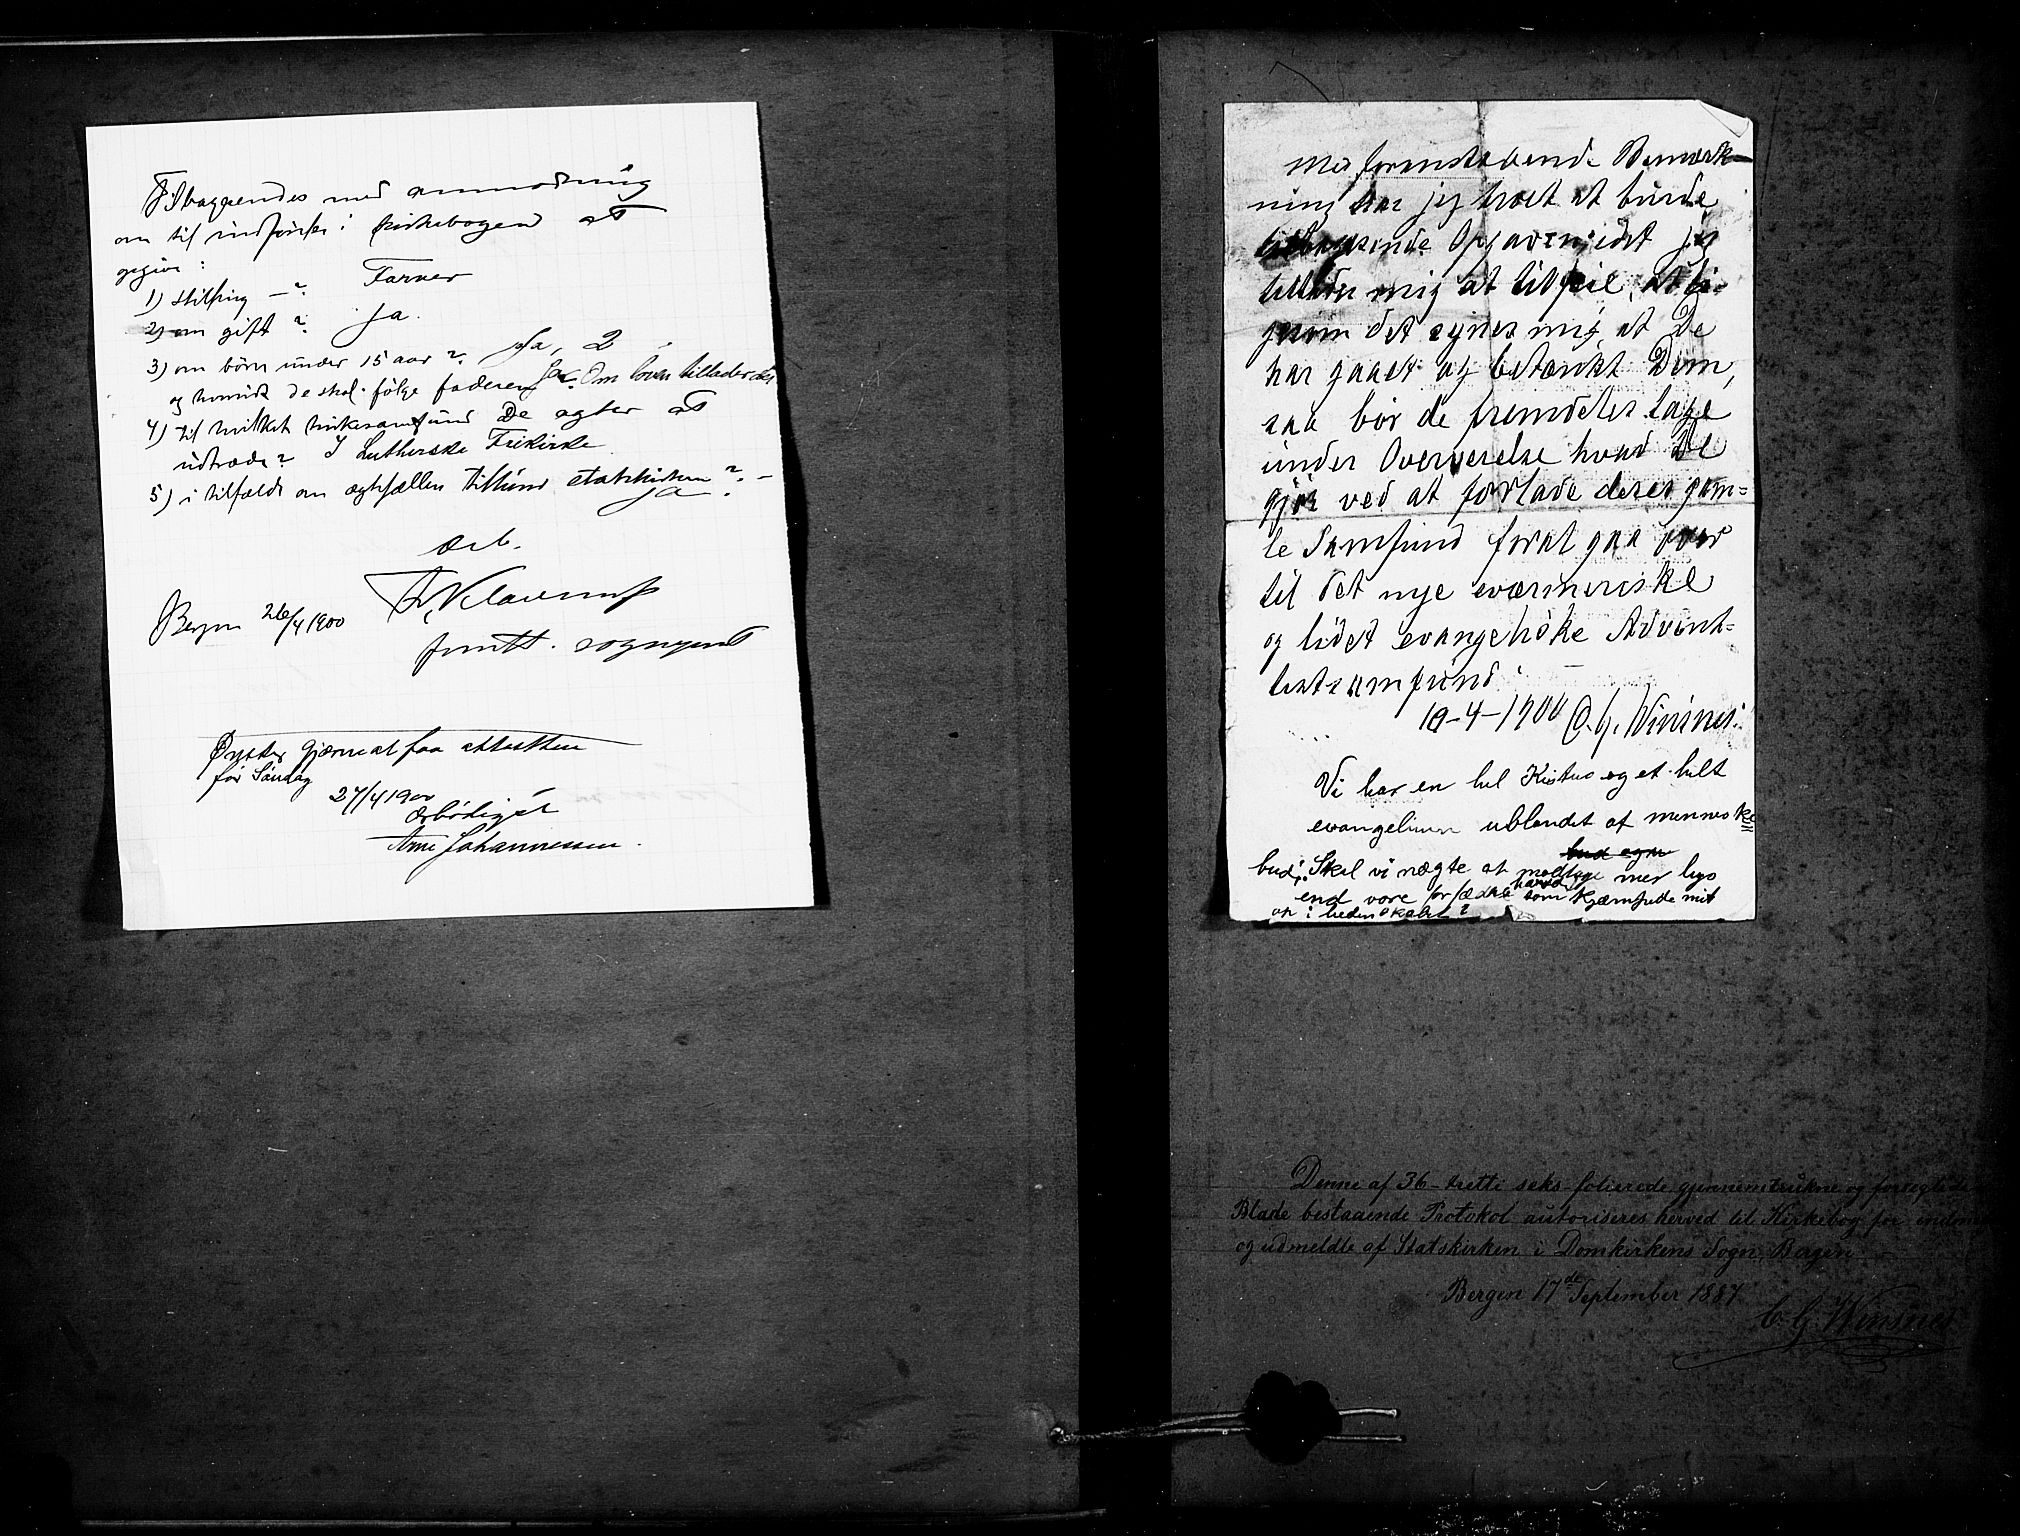 Tilbagesendes med anmodning
om til indførsel i kirkebogen at
opgive:
1) stilling —? Farver
2) om gift? Ja.
3) om börn under 15 aar? Ja, 2
og hvorvidt de skal følge faderen? Ja. Om loven tillader det
4) til hvilket kirkesamfund De agter at
udtræde? I Lutherske Frikirke
5) i tilfælde om ægtefællen tilhører statskirken? –
Ja
Ærb.
Bergen 26/4 1900
sogneprest
Ønsker gjærne at faa attesten
før Søndag
27/4 1900
Ærbödigst
Arne Johannessen.
Med foranstaaende Bemærk=
ning har jeg troet at burde
tilbagesende Opgaven, idet jeg
tillader mig at tilføie, at li-
gesom det synes mig, at De
har gaaet og betænkt Dem,
saa bør de fremdeles tage
under Overveielse hvad De
gjør ved at forlade deres gam=
le Samfund forat gaa over
til det nye sværmeriske
og lidet evangeliske Advent=
istsamfund.
10-4-1900 C. G. Winsnes.
Vi har en hel Kristus og et helt
evangelium ublandet af menneske
bud. Skal vi nægte at modtage mer lys
end vore forfædre havde som kjæmpede mit
op i hedenskabet?
Denne af 36 – tretti seks folierede gjennemtrukne og forseglede
Blade bestaaende Protokol autoriseres herved til Kirkebog for indm
og udmeldte af Statskirken i Domkirkens Sogn, Bergen
Bergen 17de September 1887
C. G. Winsnes